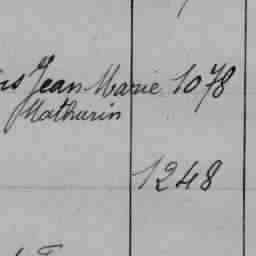 Jean Marie 1078
Mathurin
1248